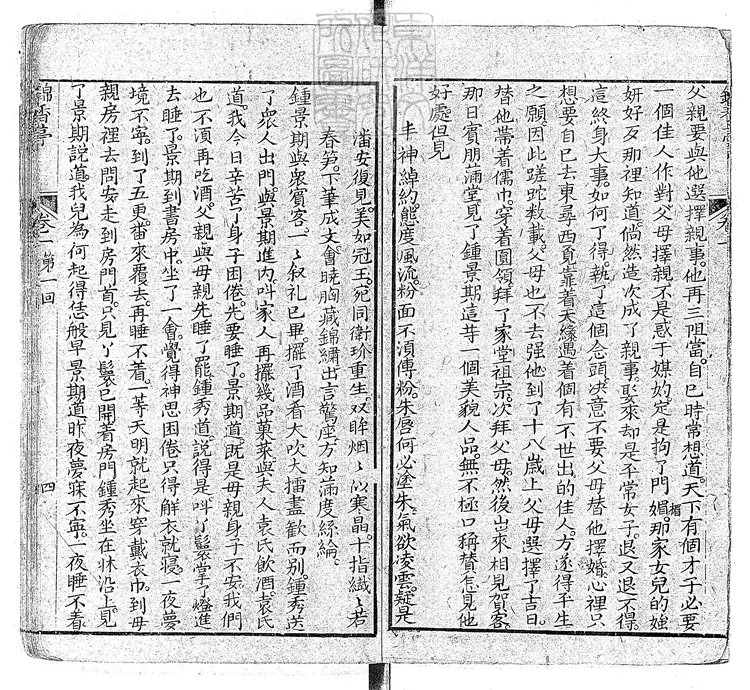 父親要與他選擇親事。他再三阻當。自已時常想道。天下有個才子必要
一個佳人作對父母擇親不是惑于媒妁定是拘了門楣。那家女兒的媸
妍好歹那裡知道倘然造次成了親事。娶來却是平常女子。退又退不得。
這終身大事。如何了得。執了這個念頭。决意不要父母替他擇婚。心裡只
想要自已去東尋西覔靠着天緣遇着個有不世出的佳人。方遂得平生
之願。因此蹉跎数載。父母也不去强他。到了十八歲上。父母選擇了吉日。
替他帶着儒巾。穿着圓領。拜了家堂祖宗。次拜父母。然後出來相見賀客。
那日賓朋滿堂。見了鍾景期這莘一個美貌人品。無不極口称賛。怎見他
好處但見
丰神綽約。態度風流。粉面不湏傅粉。朱唇何必塗朱。氣欲凌雲。疑是
潘安復見。美如冠玉。宛同衛玠重生。双眸烟〻似寒晶。十指纖〻若
春笋。下筆成文。會曉胸藏錦繡。出言驚座。方知滿度絲綸。
鍾景期與衆賓客。一〻叙礼已畢。擺了酒肴大吹大擂。盡歡而别。鍾秀送
了衆人出門。與景期進内。呌家人再擺幾品菓菜與夫人袁氏飲酒。袁氏
道。我今日辛苦了身子困倦。先要睡了。景期道。既是母親身子不安。我們
也不湏再吃酒。父親與母親先睡了罷。鍾秀道。說得是。呌丫鬟掌了燈進
去睡了。景期到書房中。坐了一會。覺得神思困倦。只得解衣就寝。一夜夢
境不寧。到了五更。番來覆去。再睡不着。一等天明就起來穿戴衣巾。到母
親房裡去問安。走到房門首。只見丫鬟已開着房門。鍾秀坐在牀沿上。見
了景期說道。我兒為何起得恁般早。景期道。昨夜夢寐不寧。一夜睡不着
錦香亭
卷一 第一回
四